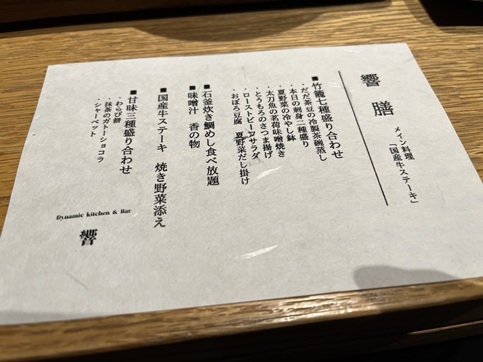 響 膳
メイン料理
「国産牛ステーキ」
■竹籠七種盛り合わせ
・だだ茶豆の冷製茶碗蒸し
・本日の刺身二種盛り
・夏野菜の冷やし鉢
・太刀魚の茗荷味噌焼き
・とうもろのさつま揚げ
・ローストビーフサラダ
・おぼろ豆腐 夏野菜だし掛け
■石釜炊き鯛めし食べ放題
■味噌汁 香の物
■国産牛ステーキ 焼き野菜添え
■甘味三種盛り合わせ
・わらび餅
・抹茶のガトーショコラ
・シャーベット
Dynamic kitchen & Bar
響